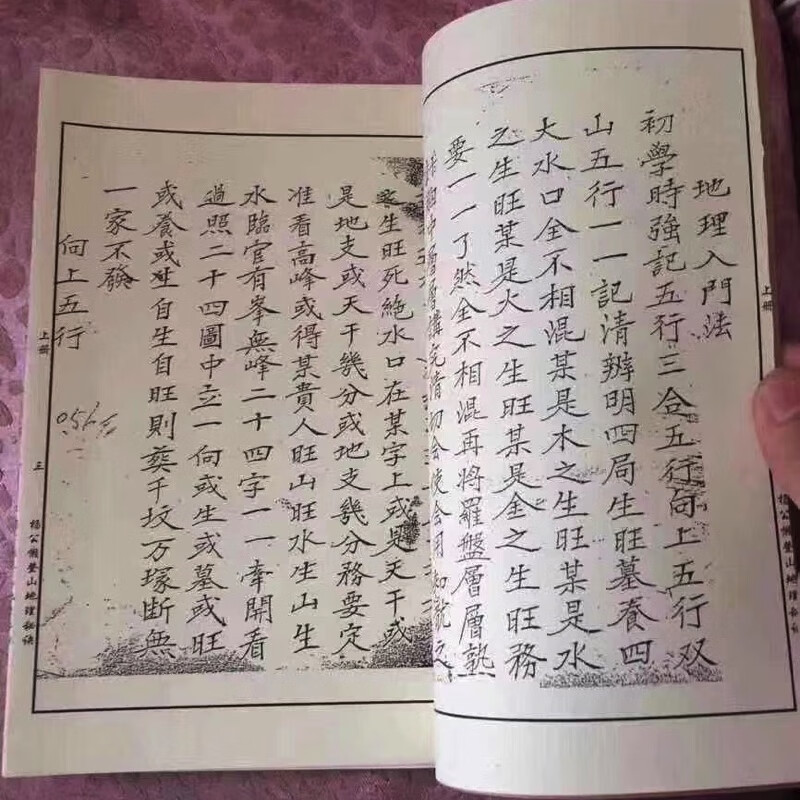 地理入門法
初學時強記五行三合五行向上五行双
山五行一一記清辨明四局生旺墓養四
大水口全不相混某是木之生旺某是水
之生旺某是火之生旺某是金之生旺務
要一一了然全不相混再將羅盤層層熟
上册
楊公懶登山地理秘訣
生旺死絶水口在某字上或是天干或
是地支或天干幾分或地支幾分務要定
准看高峰或得某貴人旺山旺水生山生
水臨官有峯無峰二十四字一一牽開看
過照二十四圖中立一向或生或墓或旺
或養或 自生自旺則葬千坟万塚断無
一家不發
向上五行
上册
三
楊公懶登山地理秘訣